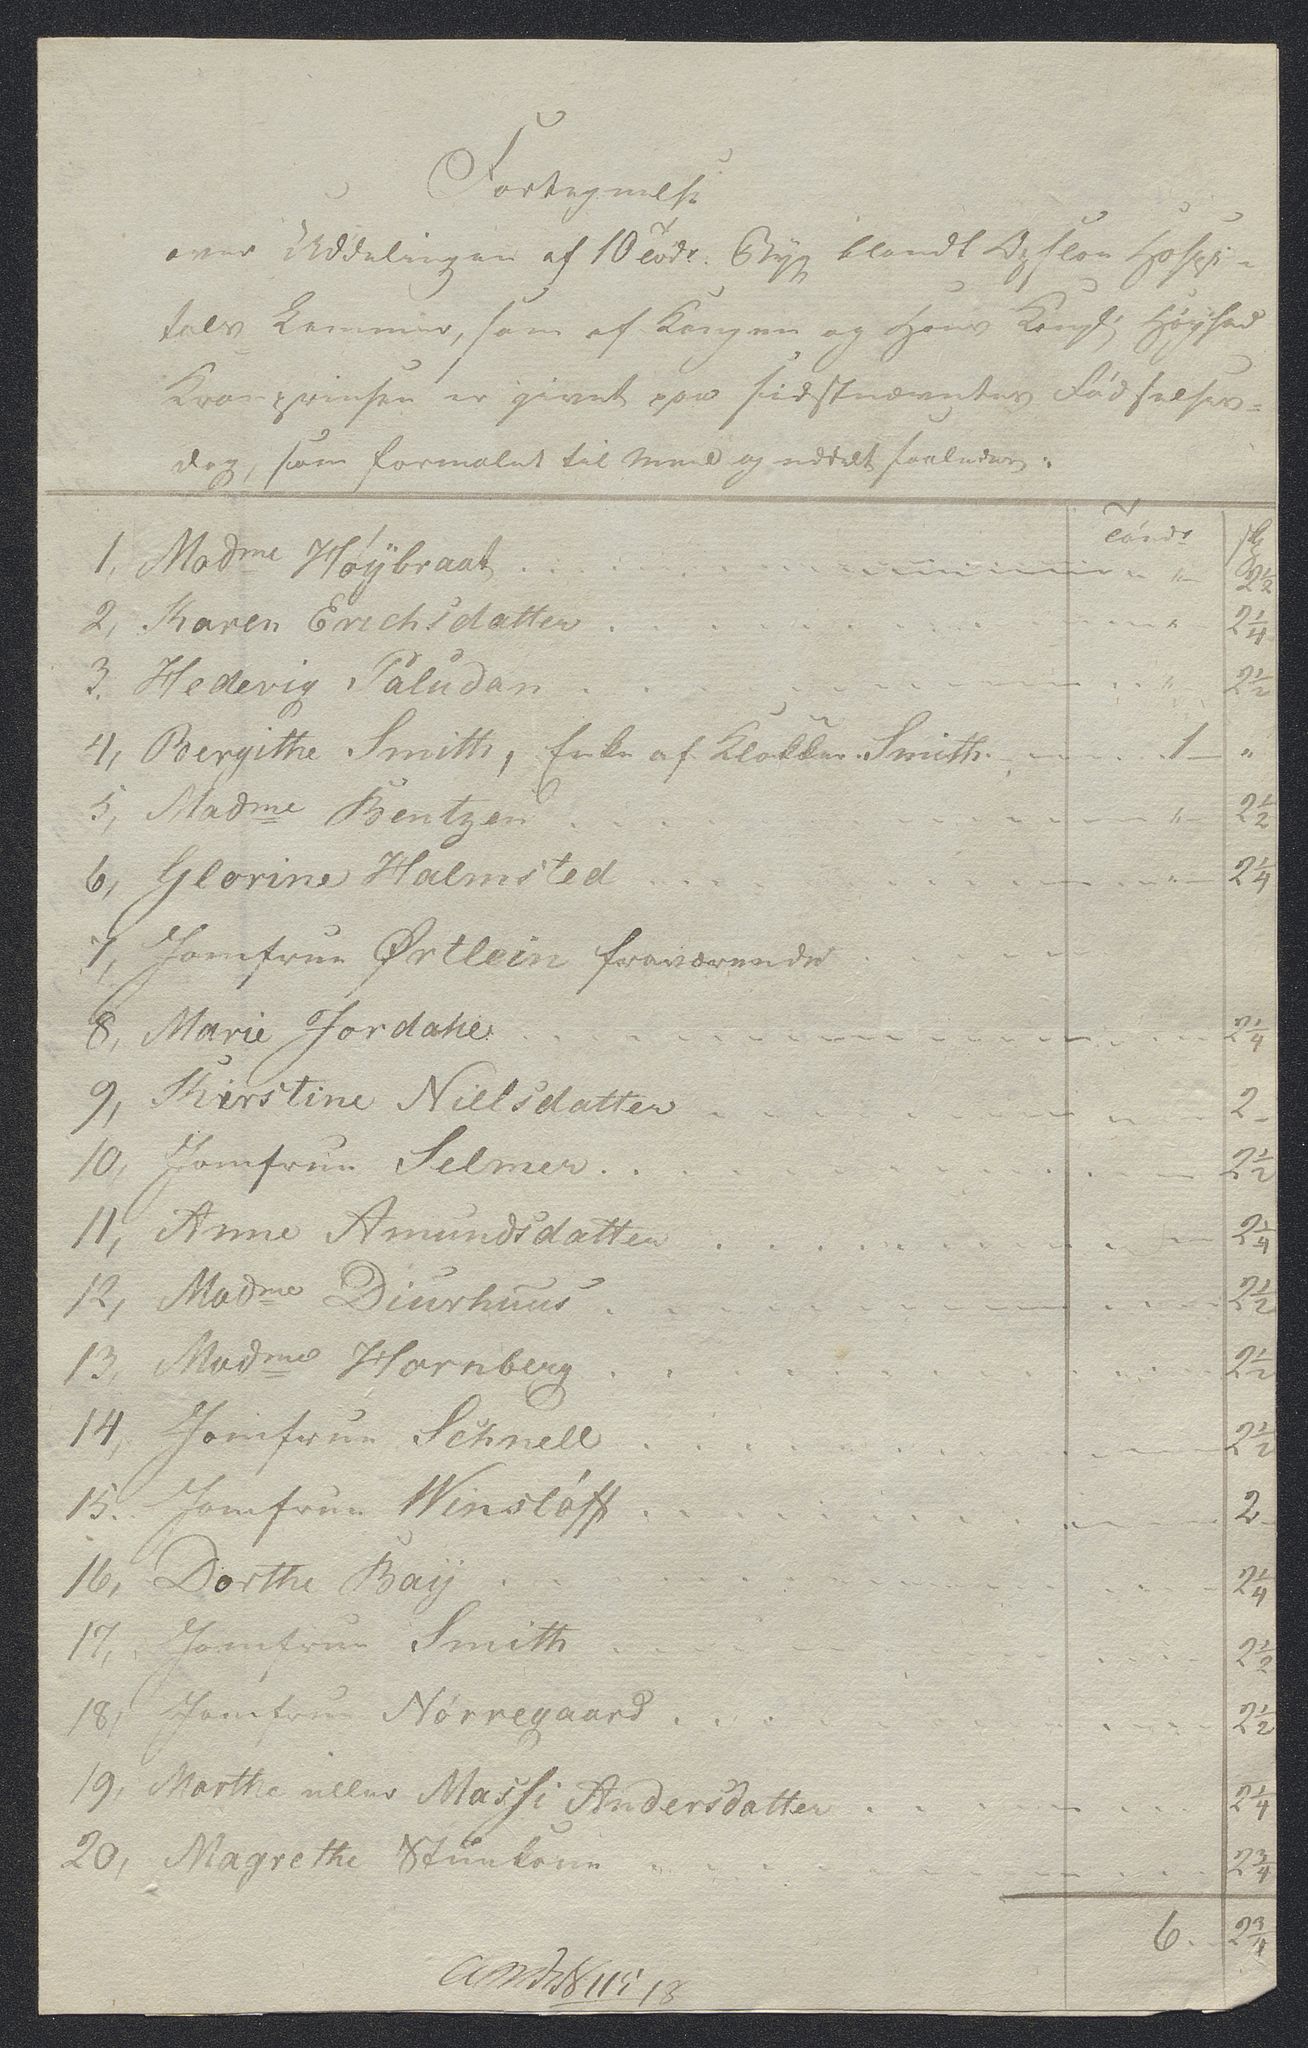 Fortegnelse
over Uddelingen af 10 Tönd. Byg blandt Opsloe Hospi-
tals Lemmer, som af Kongen og Hans Kongl: Höyhed
Kronprinsen er givet paa sidstnævntes Födselsdags-
dag, som formalet til Meel og uddelt saaledes:
Tönd. skp
1, Madme Höÿbraat . . . " 2½
2, Karen Erichsdatter . . . " 2¼
3. Hedevig Paludan . . . " 2½
4, Bergithe Smith, Enke af Klokker Smith . . . 1 "
5, Madme Bentzen . . . " 2½
6, Glorine Halmsted . . . " 2¼
7, Jomfrue Ørtlein fraværende . . .
8, Marie Jordahl . . . 2¼
9, Kirstine Nielsdatter . . . 2 -
10, Jomfrue Selmer . . . 2½
11, Anne Amundsdatter . . . 2¼
12, Madme Diurhuus . . . 2½
13, Madme Hornberg . . . 2½
14, Jomfrue Schnell . . . 2½
15. Jomfrue Winslöff . . . 2 -
16, Dorthe Baÿ . . . 2¼
17, Jomfrue Smith . . . 2½
18, Jomfrue Nörregaard . . . 2½
19, Marthe eller Massi Andersdatter . . . 2¼
20, Magrethe . . . 2¾
6. 2¾